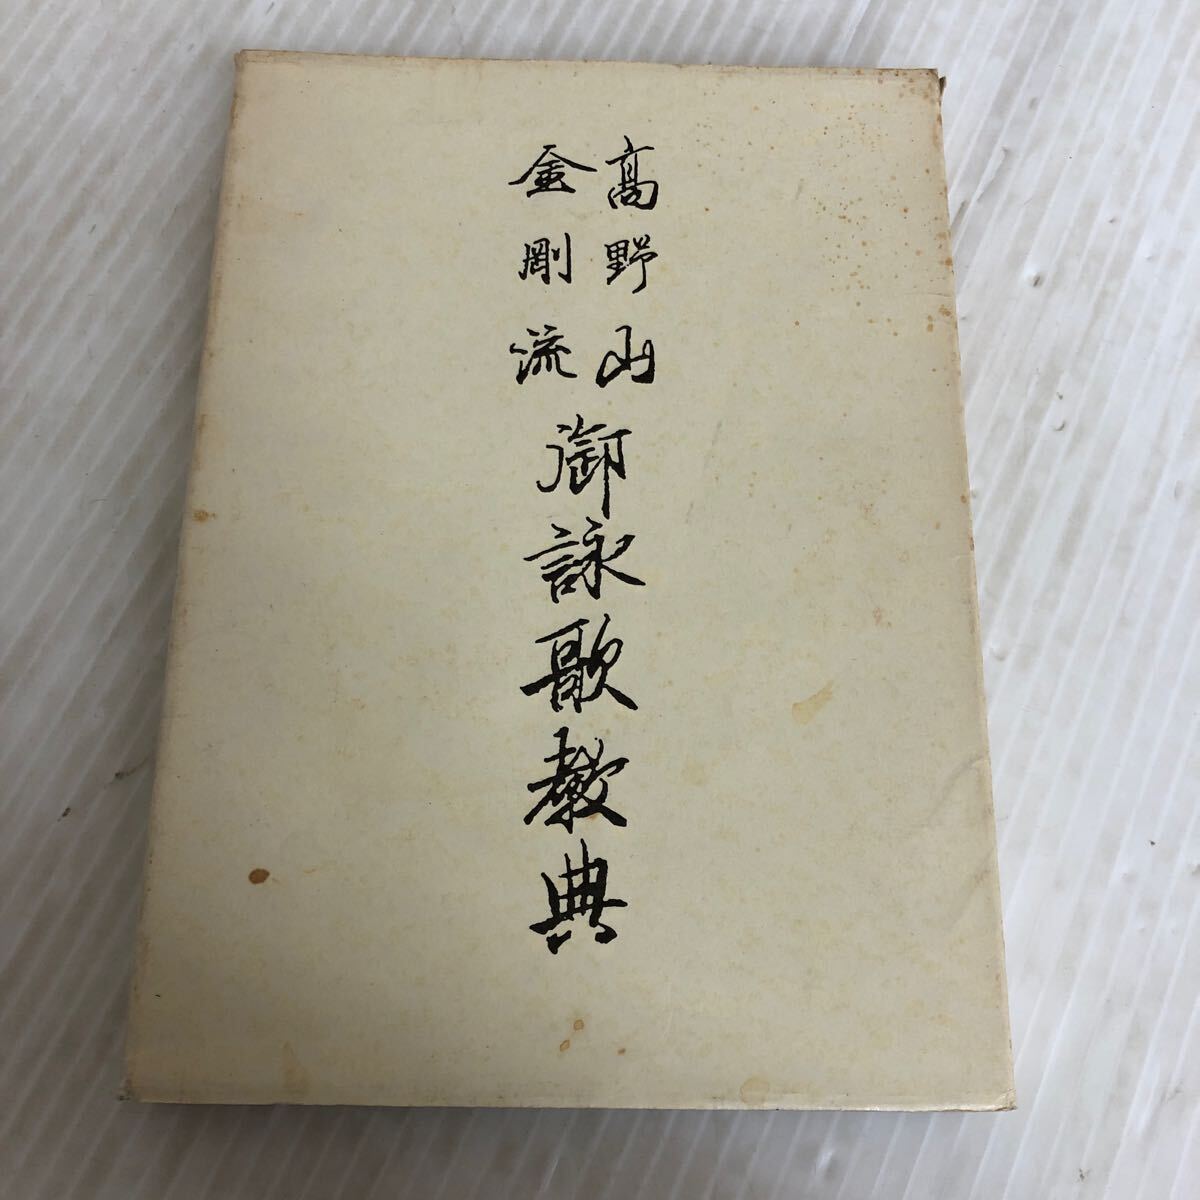 高野山
金剛流
御詠歌教典